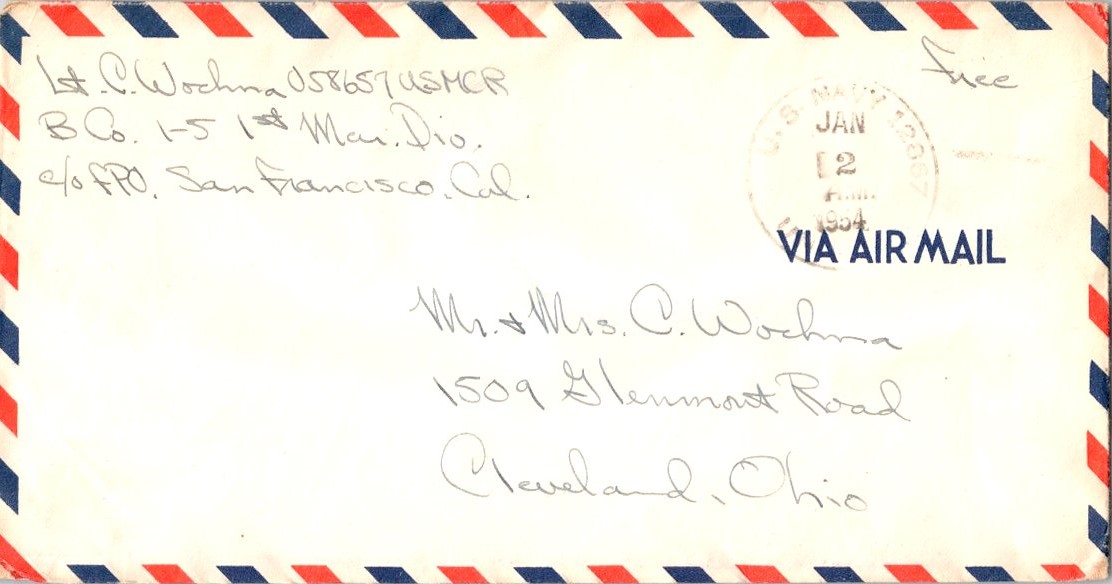 Lt. C. Wochna 058657 USMCR
B Co. 1-5 1st Mar. Div.
c/o FPO. San Francisco, Cal.
Free
U.S. NAVY 12867
JAN
2
A.M.
1954
VIA AIR MAIL
Mr. & Mrs. C. Wochna
1509 Glenmont Road
Cleveland, Ohio